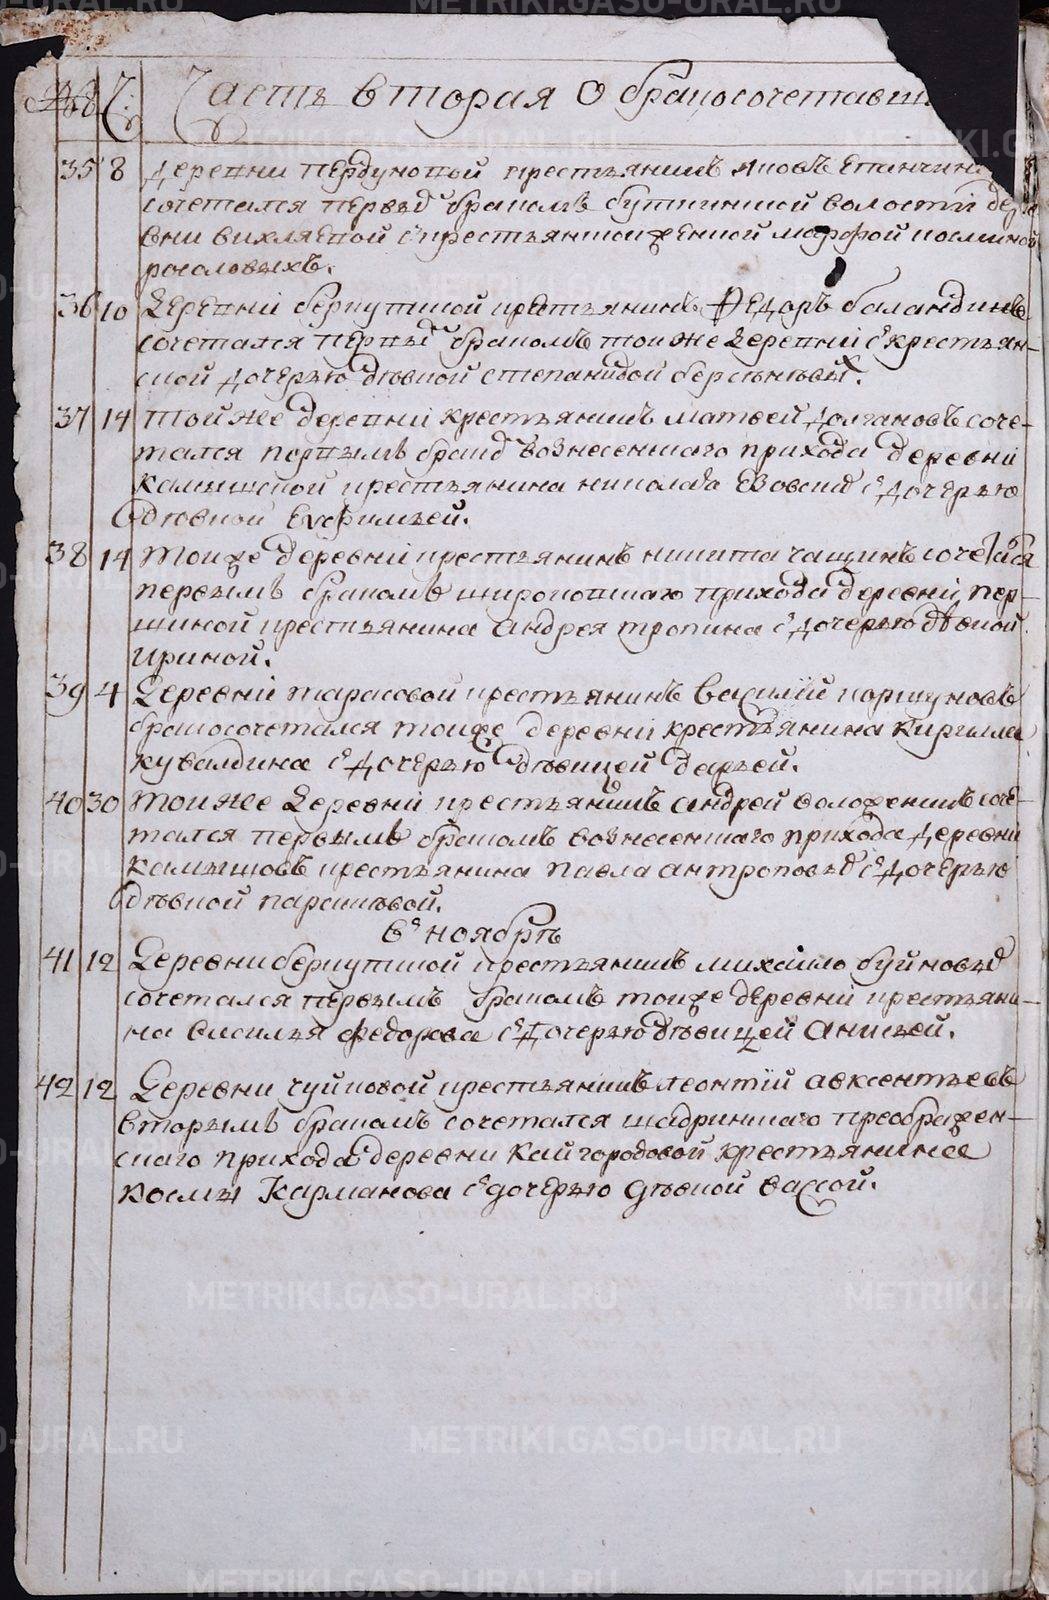 METRIKI.GASO-URAL.RU
№ Ч: Часть вторая О бракосочетавш
35 8 деревни пердуновой крестьянинъ яковъ Епанчин
сочетался первы браком буткинской волости дере
вни вихляевой с крестьянскою женкой марфой
рогаловыхъ.
36 10 Деревни беркутской крестьянинъ Федоръ баландинъ
сочетался первы браком тои же деревни с крестьян-
ской дочерью девкой степанидой берсеневых.
37 14 той же деревни крестьянинъ матвей долгановъ соче-
тался первымъ брако вознесенского прихода деревни
камышской крестьянина николая Езовски с дочерью
девкой Евфимьей.
38 14 тоиже деревни крестьянинъ никита чащинъ сочетался
первымъ бракомъ широковского прихода деревни пер-
шиной крестьянина андрея тропина с дочерью девкой
ириной.
39 4 Деревни тарасовой крестьянинъ василий коршуновъ
бракосочетался тоиже деревни крестьянина кирилла
кувалдина с дочерью девицей дарьей.
40 30 тои же Деревни крестьянинъ андрей воложенинъ соче-
тался первымъ бракомъ вознесенского прихода деревни
камышовъ крестьянина павла антроповы с дочерью
девкой парасковой.
в ноябрѣ
41 12 Деревни беркутской крестьянинъ михаило буйновы
сочетался первымъ бракомъ тоиже деревни крестьяни-
на василья федорова с дочерью девицей анисьей.
42 12 Деревни чуйковой крестьянинъ леонтий авксентьевъ
вторымъ бракомъ сочетался шадринского преображен-
скаго прихода деревни кайгородовой крестьянина
космы Карманова с дочерью девкой вассой.
METRIKI.GASO-URAL.RU
METRIKI.GASO-URAL.RU
METRIKI.GASO-URAL.RU